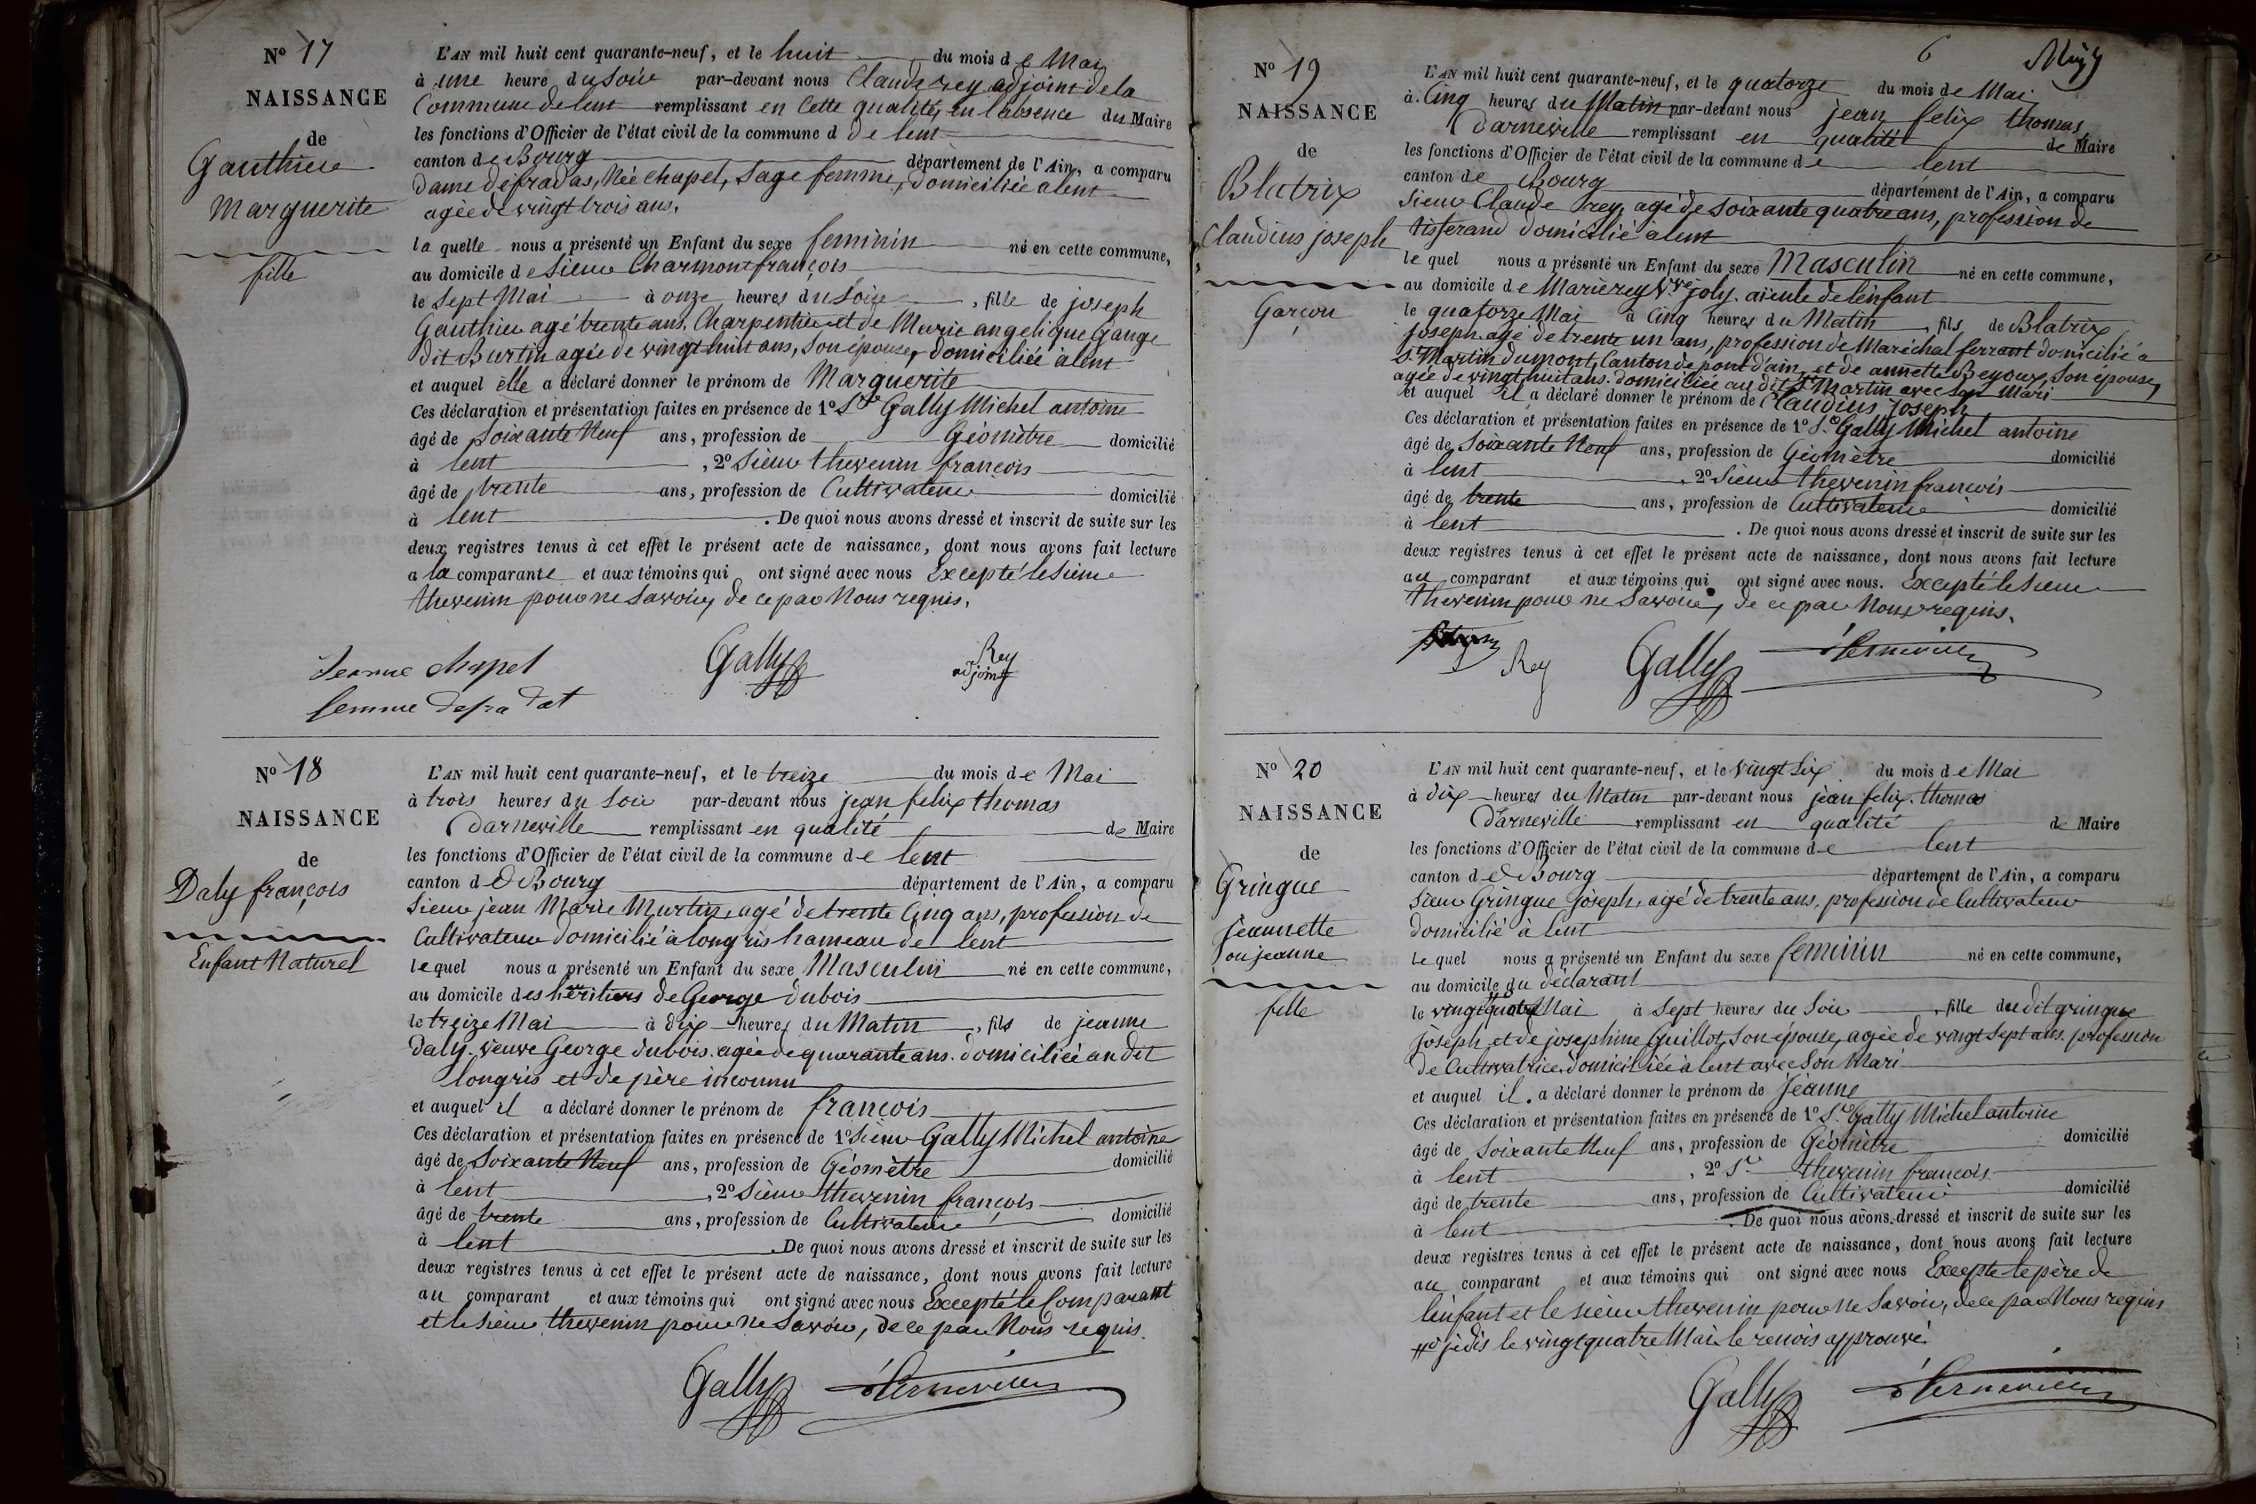 N° 17
NAISSANCE
de
Gauthier
Marguerite
fille
L'AN mil huit cent quarante-neuf, et le huit du mois de Mai
à une heure du soir par-devant nous Claude rey adjoint de la
Commune de lent remplissant en cette qualité, en l'absence du Maire
les fonctions d'Officier de l'état civil de la commune d de lent
canton de Bourg département de l'Ain, a comparu
dame défradas, Née chapel, sage femme, domiciliée a lent
agée de vingt trois ans,
la quelle nous a présenté un Enfant du sexe feminin né en cette commune,
au domicile de sieur Charmont françois
le sept Mai à onze heures du soir, fille de joseph
Gauthier agé trente ans, Charpentier et de Marie angelique Gange
dit Burtin agée de vingt huit ans, son épouse, domiciliée à lent
et auquel elle a déclaré donner le prénom de Marguerite
Ces déclaration et présentation faites en présence de 1° Sr Gally Michel antoine
âgé de soixante Neuf ans, profession de Géomètre domicilié
à lent, 2° sieur thevenin françois
âgé de trente ans, profession de Cultivateur domicilié
à lent. De quoi nous avons dressé et inscrit de suite sur les
deux registres tenus à cet effet le présent acte de naissance, dont nous avons fait lecture
a la comparante et aux témoins qui ont signé avec nous Excepté le sieur
thevenin pour ne savoir, de ce par Nous requis.
Jeanne chapel
femme defradat
Gally
Rey
adjoint
N° 18
NAISSANCE
de
Daly françois
Enfant Naturel
L'AN mil huit cent quarante-neuf, et le treize du mois de Mai
à trois heures du soir par-devant nous jean felix thomas
Darneville remplissant en qualité de Maire
les fonctions d'Officier de l'état civil de la commune de lent
canton de Bourg département de l'Ain, a comparu
sieur jean Marie Murtin, agé de trente Cinq ans, profession de
Cultivateur domicilié à longris hameau de lent
le quel nous a présenté un Enfant du sexe Masculin né en cette commune,
au domicile des héritiers de George dubois
le treize Mai à dix heures du Matin, fils de jeanne
daly. veuve George dubois. agée de quarante ans. domiciliée au dit
longris et de père inconnu
et auquel il a déclaré donner le prénom de françois
Ces déclaration et présentation faites en présence de 1° sieur Gally Michel antoine
âgé de soixante Neuf ans, profession de Géomètre domicilié
à lent, 2° sieur thevenin françois
âgé de trente ans, profession de Cultivateur domicilié
à lent. De quoi nous avons dressé et inscrit de suite sur les
deux registres tenus à cet effet le présent acte de naissance, dont nous avons fait lecture
au comparant et aux témoins qui ont signé avec nous Excepté le Comparant
et le sieur thevenin pour ne savoir, de ce par Nous requis.
Gally
6
N° 19
NAISSANCE
de
Blatrix
Claudius joseph
Garçon
L'AN mil huit cent quarante-neuf, et le quatorze du mois de Mai
à Cinq heures du Matin par-devant nous jean felix thomas
Darneville remplissant en qualité de Maire
les fonctions d'Officier de l'état civil de la commune de lent
canton de Bourg département de l'Ain, a comparu
sieur Claude rey, agé de soixante quatre ans, profession de
tisserand domicilié a lent
le quel nous a présenté un Enfant du sexe Masculin né en cette commune,
au domicile de Marie rey Vve joly. aieule de lenfant
le quatorze Mai à Cinq heures du Matin, fils de Blatrix
joseph. agé de trente un ans, profession de Maréchal ferrant domicilié a
St Martin dumont, Canton de pont d'ain, et de annette Beyoux, son épouse,
agée de vingt huit ans. domiciliée au dit St Martin avec son Mari
et auquel il a déclaré donner le prénom de Claudius, Joseph
Ces déclaration et présentation faites en présence de 1° Sr Gally Michel antoine
âgé de soixante Neuf ans, profession de Géomètre domicilié
à lent, 2° sieur thevenin françois
âgé de trente ans, profession de Cultivateur domicilié
à lent. De quoi nous avons dressé et inscrit de suite sur les
deux registres tenus à cet effet le présent acte de naissance, dont nous avons fait lecture
au comparant et aux témoins qui ont signé avec nous. Excepté le sieur
thevenin pour ne savoir, de ce par Nous requis.
Rey Gally
N° 20
NAISSANCE
de
Gringue
jeannette
ou jeanne
fille
L'AN mil huit cent quarante-neuf, et le vingt Six du mois de Mai
à dix heures du Matin par-devant nous jean felix. thomas
Darneville remplissant en qualité de Maire
les fonctions d'Officier de l'état civil de la commune de lent
canton de Bourg département de l'Ain, a comparu
sieur Gringue joseph, agé de trente ans, profession de Cultivateur
domicilié à lent
le quel nous a présenté un Enfant du sexe feminin né en cette commune,
au domicile du déclarant
le vingt quatre Mai à sept heures du soir, fille du dit gringue
joseph et de josephine Guillot, son épouse, agée de vingt sept ans. profession
de Cultivatrice. domiciliée à lent avec son Mari
et auquel il a déclaré donner le prénom de Jeanne
Ces déclaration et présentation faites en présence de 1° Sr Gally Michel antoine
âgé de soixante Neuf ans, profession de Géomètre domicilié
à lent, 2° Sr thevenin françois
âgé de trente ans, profession de Cultivateur domicilié
à lent. De quoi nous avons dressé et inscrit de suite sur les
deux registres tenus à cet effet le présent acte de naissance, dont nous avons fait lecture
au comparant et aux témoins qui ont signé avec nous Excepté le père de
lenfant et le sieur thevenin pour ne savoir, de ce par Nous requis
je dis le vingt quatre Mai le renvoi approuvé
Gally